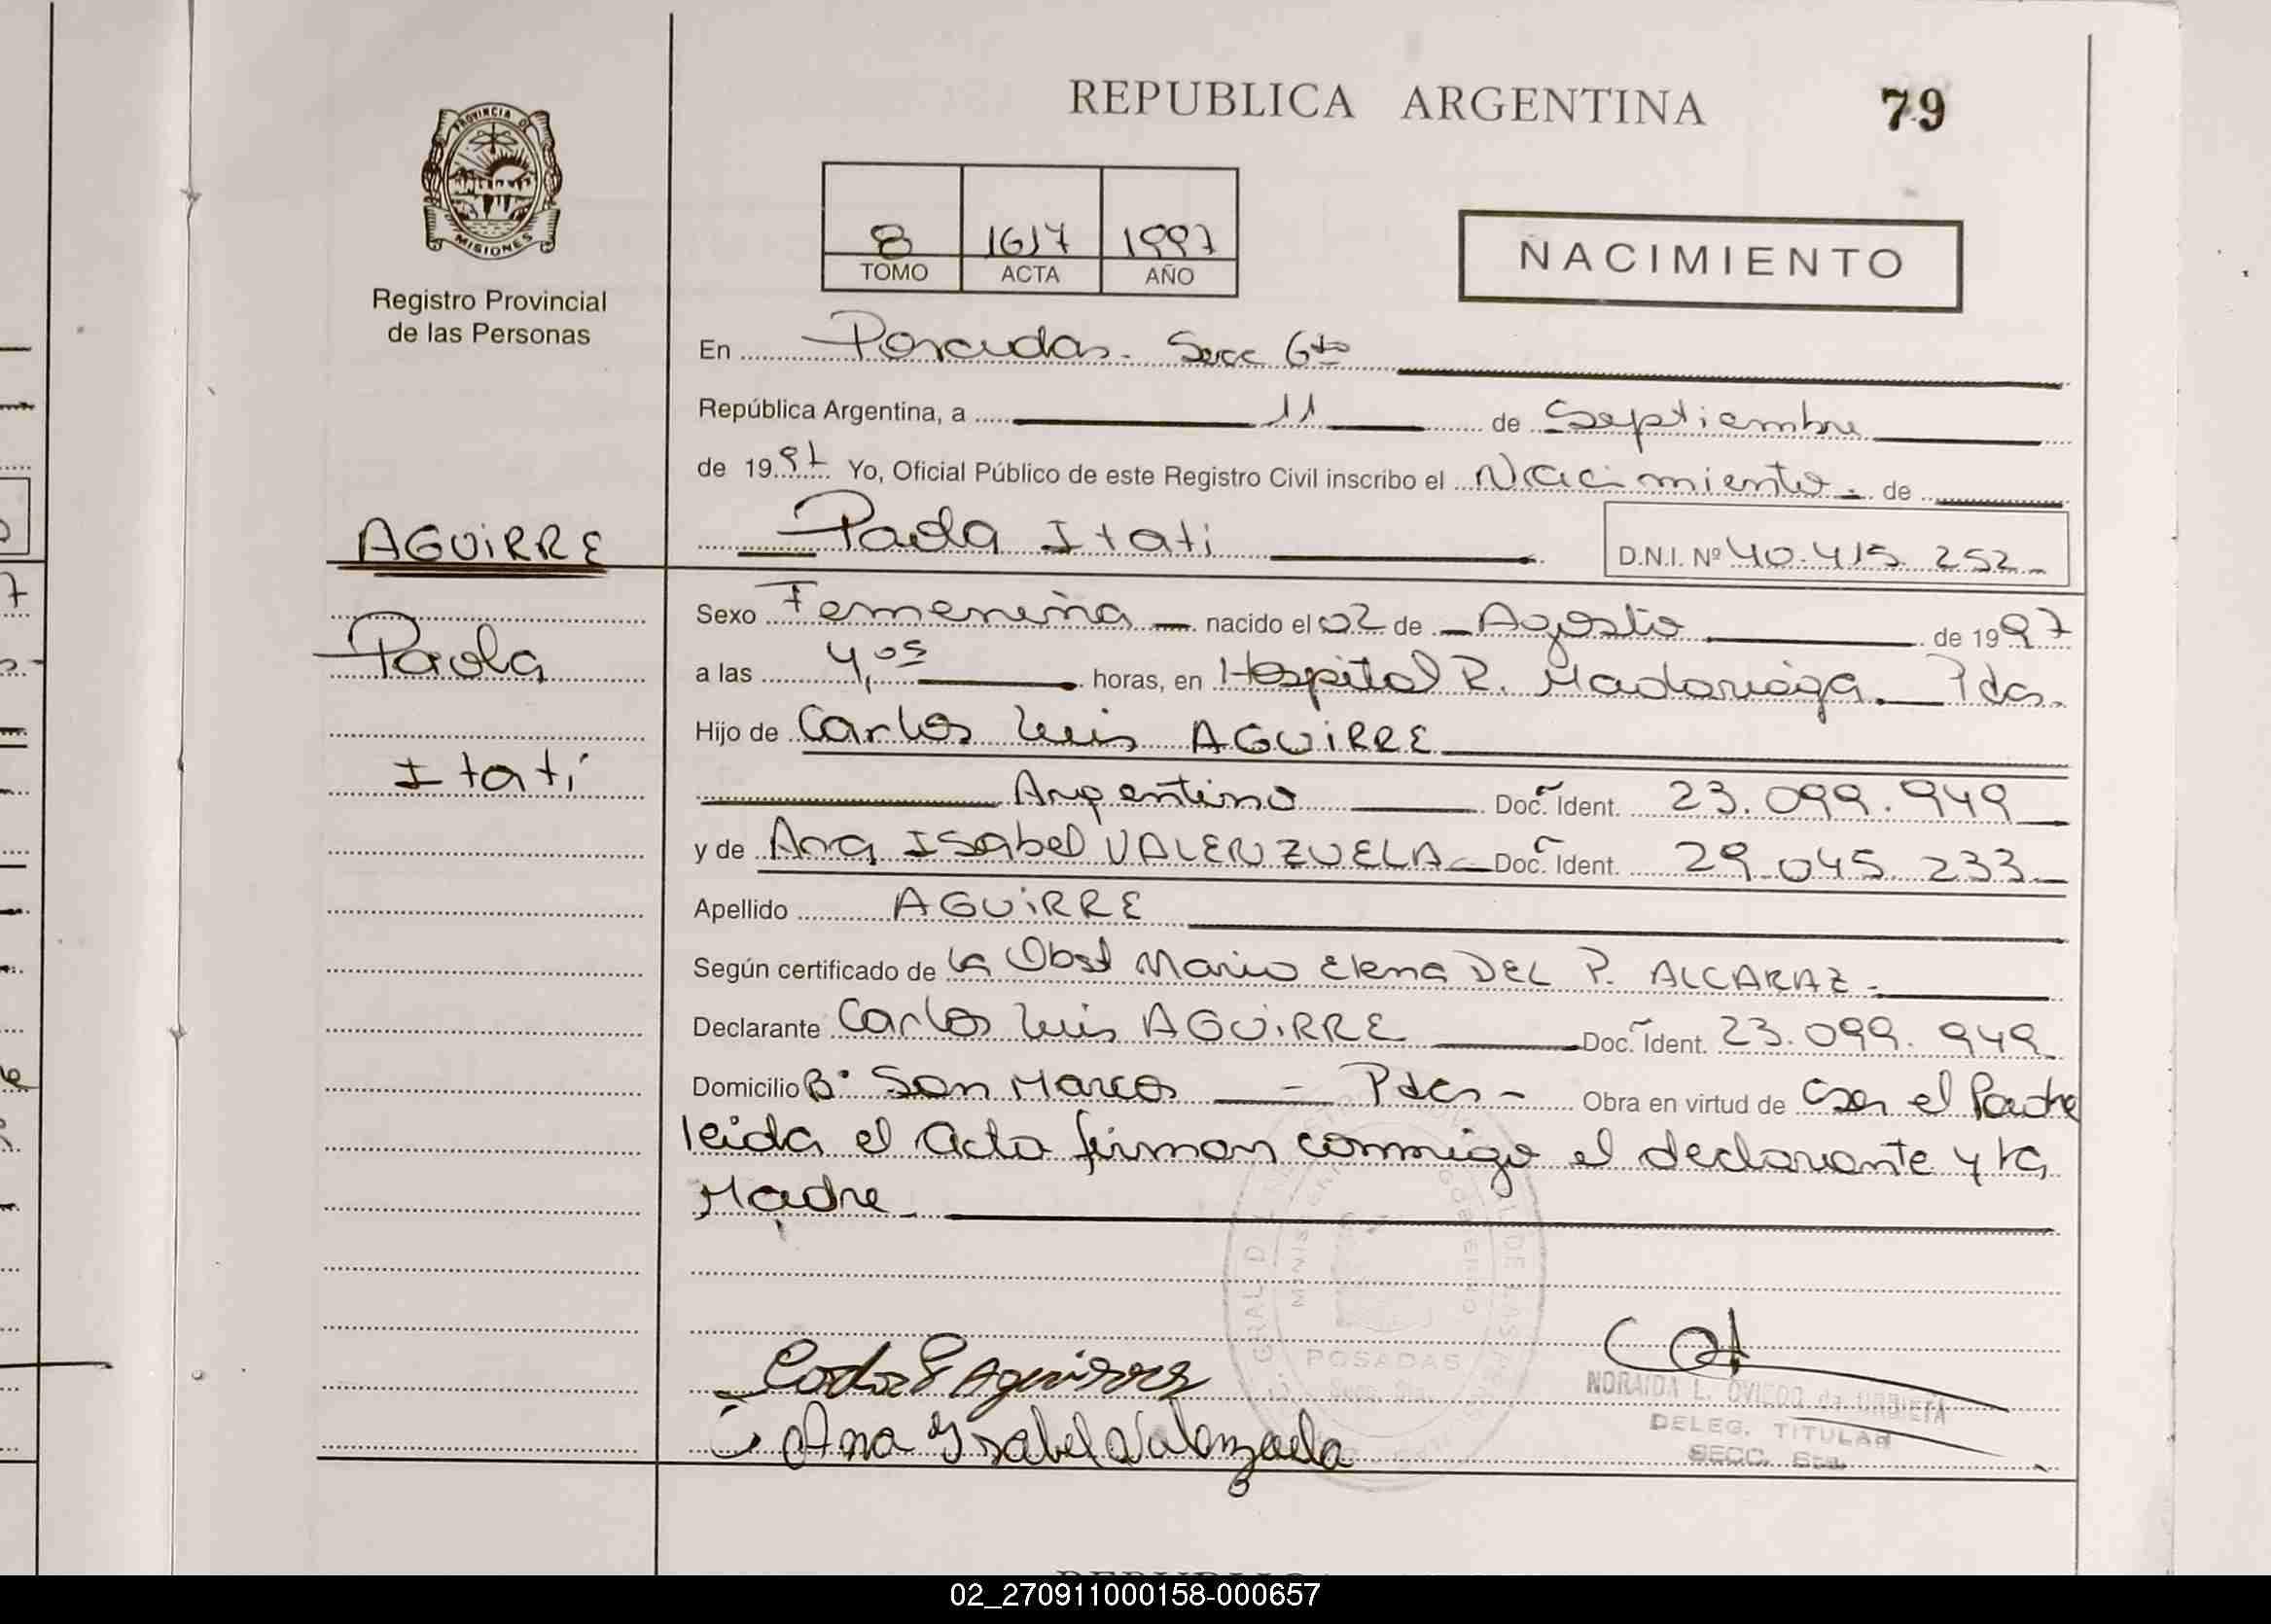 REPUBLICA ARGENTINA 79
PROVINCIA DE
MISIONES
Registro Provincial
de las Personas
8 1617 1997
TOMO ACTA AÑO
NACIMIENTO
En Posadas - Secc 6ta
República Argentina, a 11 de Septiembre
de 1997 Yo, Oficial Público de este Registro Civil inscribo el Nacimiento - de
AGUIRRE
Paola Itati D.N.I. Nº 40.415.252
Sexo Femenina nacido el 02 de Agosto de 1997
Paola
a las 4,05 horas, en Hospital R. Madariaga. Pdas.
Hijo de Carlos Luis AGUIRRE
Itatí
Argentino Doc. Ident. 23.099.949
y de Ana Isabel VALENZUELA Doc. Ident. 29.045.233
Apellido AGUIRRE
Según certificado de la Obst Maria Elena DEL P. ALCARAZ -
Declarante Carlos Luis AGUIRRE Doc. Ident. 23.099.949
Domicilio Bº San Marcos - Pdas - Obra en virtud de ser el Padre
leida el Acta firman conmigo el declarante y la
Madre
POSADAS
Carlos L Aguirre
Ana Ysabel Valenzuela
NORAIDA L. OVIEDO de URBIETA
DELEG. TITULAR
SECC. 6ta.
02_270911000158-000657